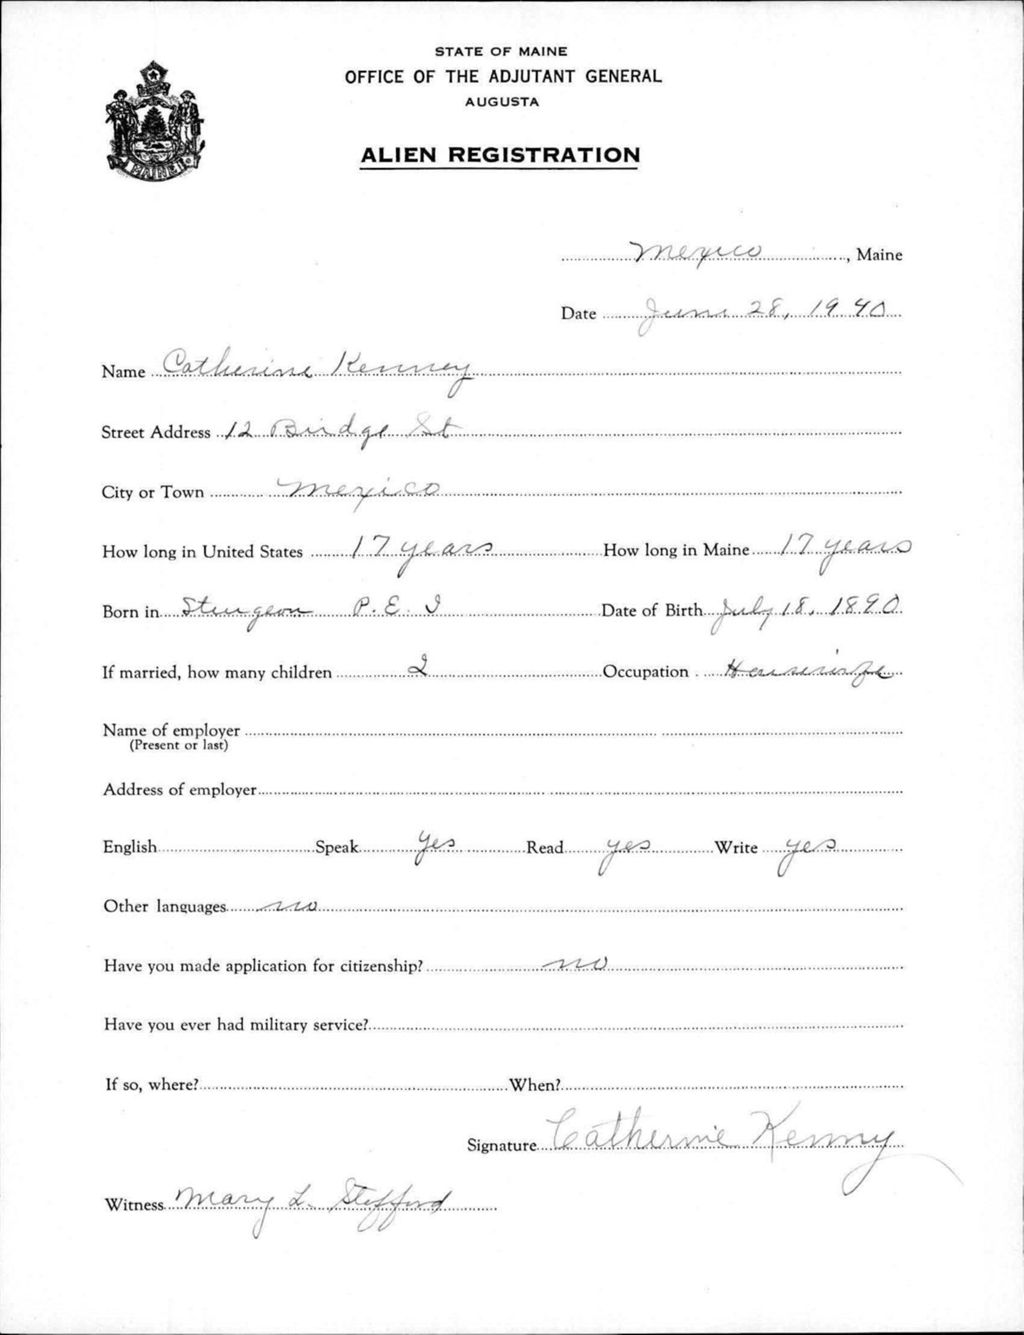 STATE OF MAINE
OFFICE OF THE ADJUTANT GENERAL
AUGUSTA
ALIEN REGISTRATION
Mexico, Maine
Date June 28, 1940
Name Catherine Kenney
Street Address 12 Bridge St
City or Town Mexico
How long in United States 17 years How long in Maine 17 years
Born in Sturgeon P.E.I Date of Birth July 18, 1890
If married, how many children 2 Occupation Housewife
Name of employer
(Present or last)
Address of employer
English Speak yes Read yes Write yes
Other languages no
Have you made application for citizenship? no
Have you ever had military service?
If so, where? When?
Signature Catherine Kenny
Witness Mary L.
MAINE